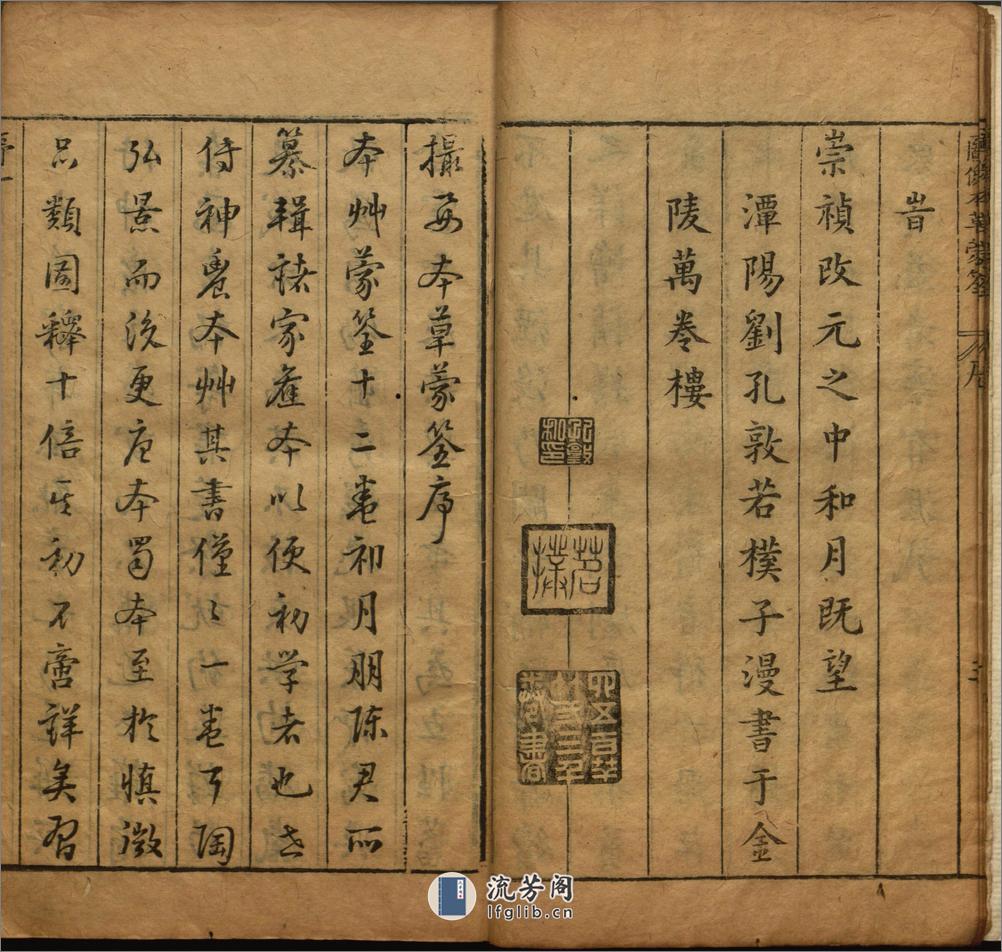 旹
崇禎改元之中和月既望
潭陽劉孔敦若樸子漫書于金
陵萬卷樓
撮要本草蒙筌序
本艸蒙筌十二卷祁月朋陳君所
纂輯諸家舊本以便初學者也世
侍神農本艸其書僅〻一卷耳陶
弘景而後更唐本蜀本至於慎微
品類圖繹十倍其初不啻詳矣習
序一
流芳阁
lfglib.cn